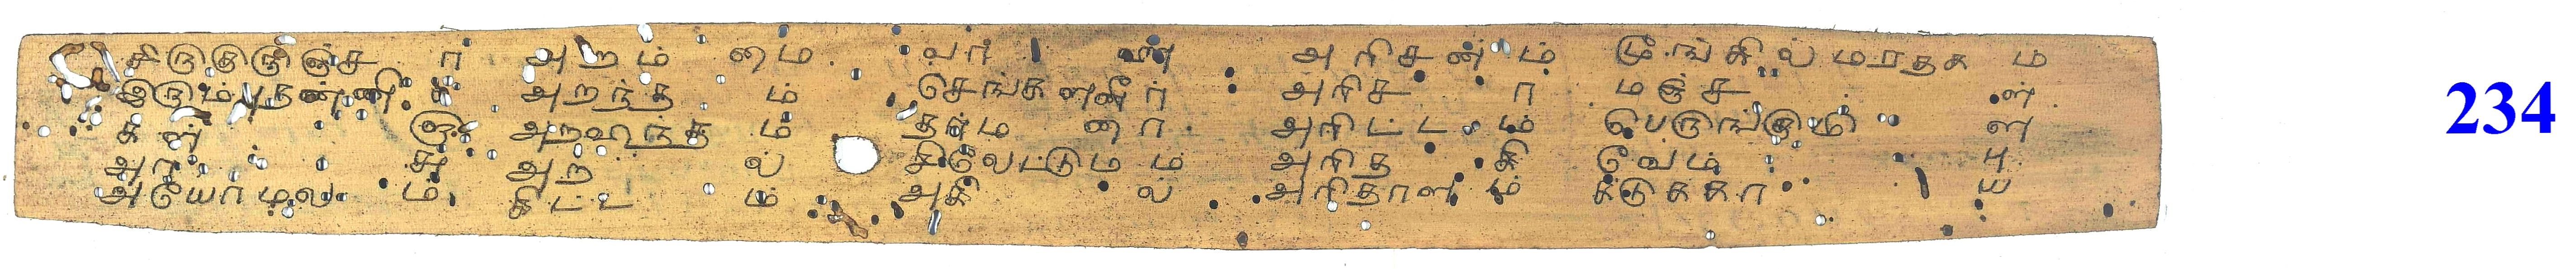 சிறுகுறுஞ்ச ா அறம் மை வா ன் அரிசன ம் மூங்கில் மரதக ம்
இரும்புதண்ணி க அறந்த ம் செங்களனீர் அரிச ா மஞ்ச ள்
கள் கு அறஹந்த ம் தாம ரை அரிட்ட ம் பெருங்குமி ள்
அரி அற ல் சிவேட்டும ம் அரித கி வேம் பு
அயோமல ம் கிட்ட ம் அகி ல் அரிதாள ம் கடுக்கா ய்
234